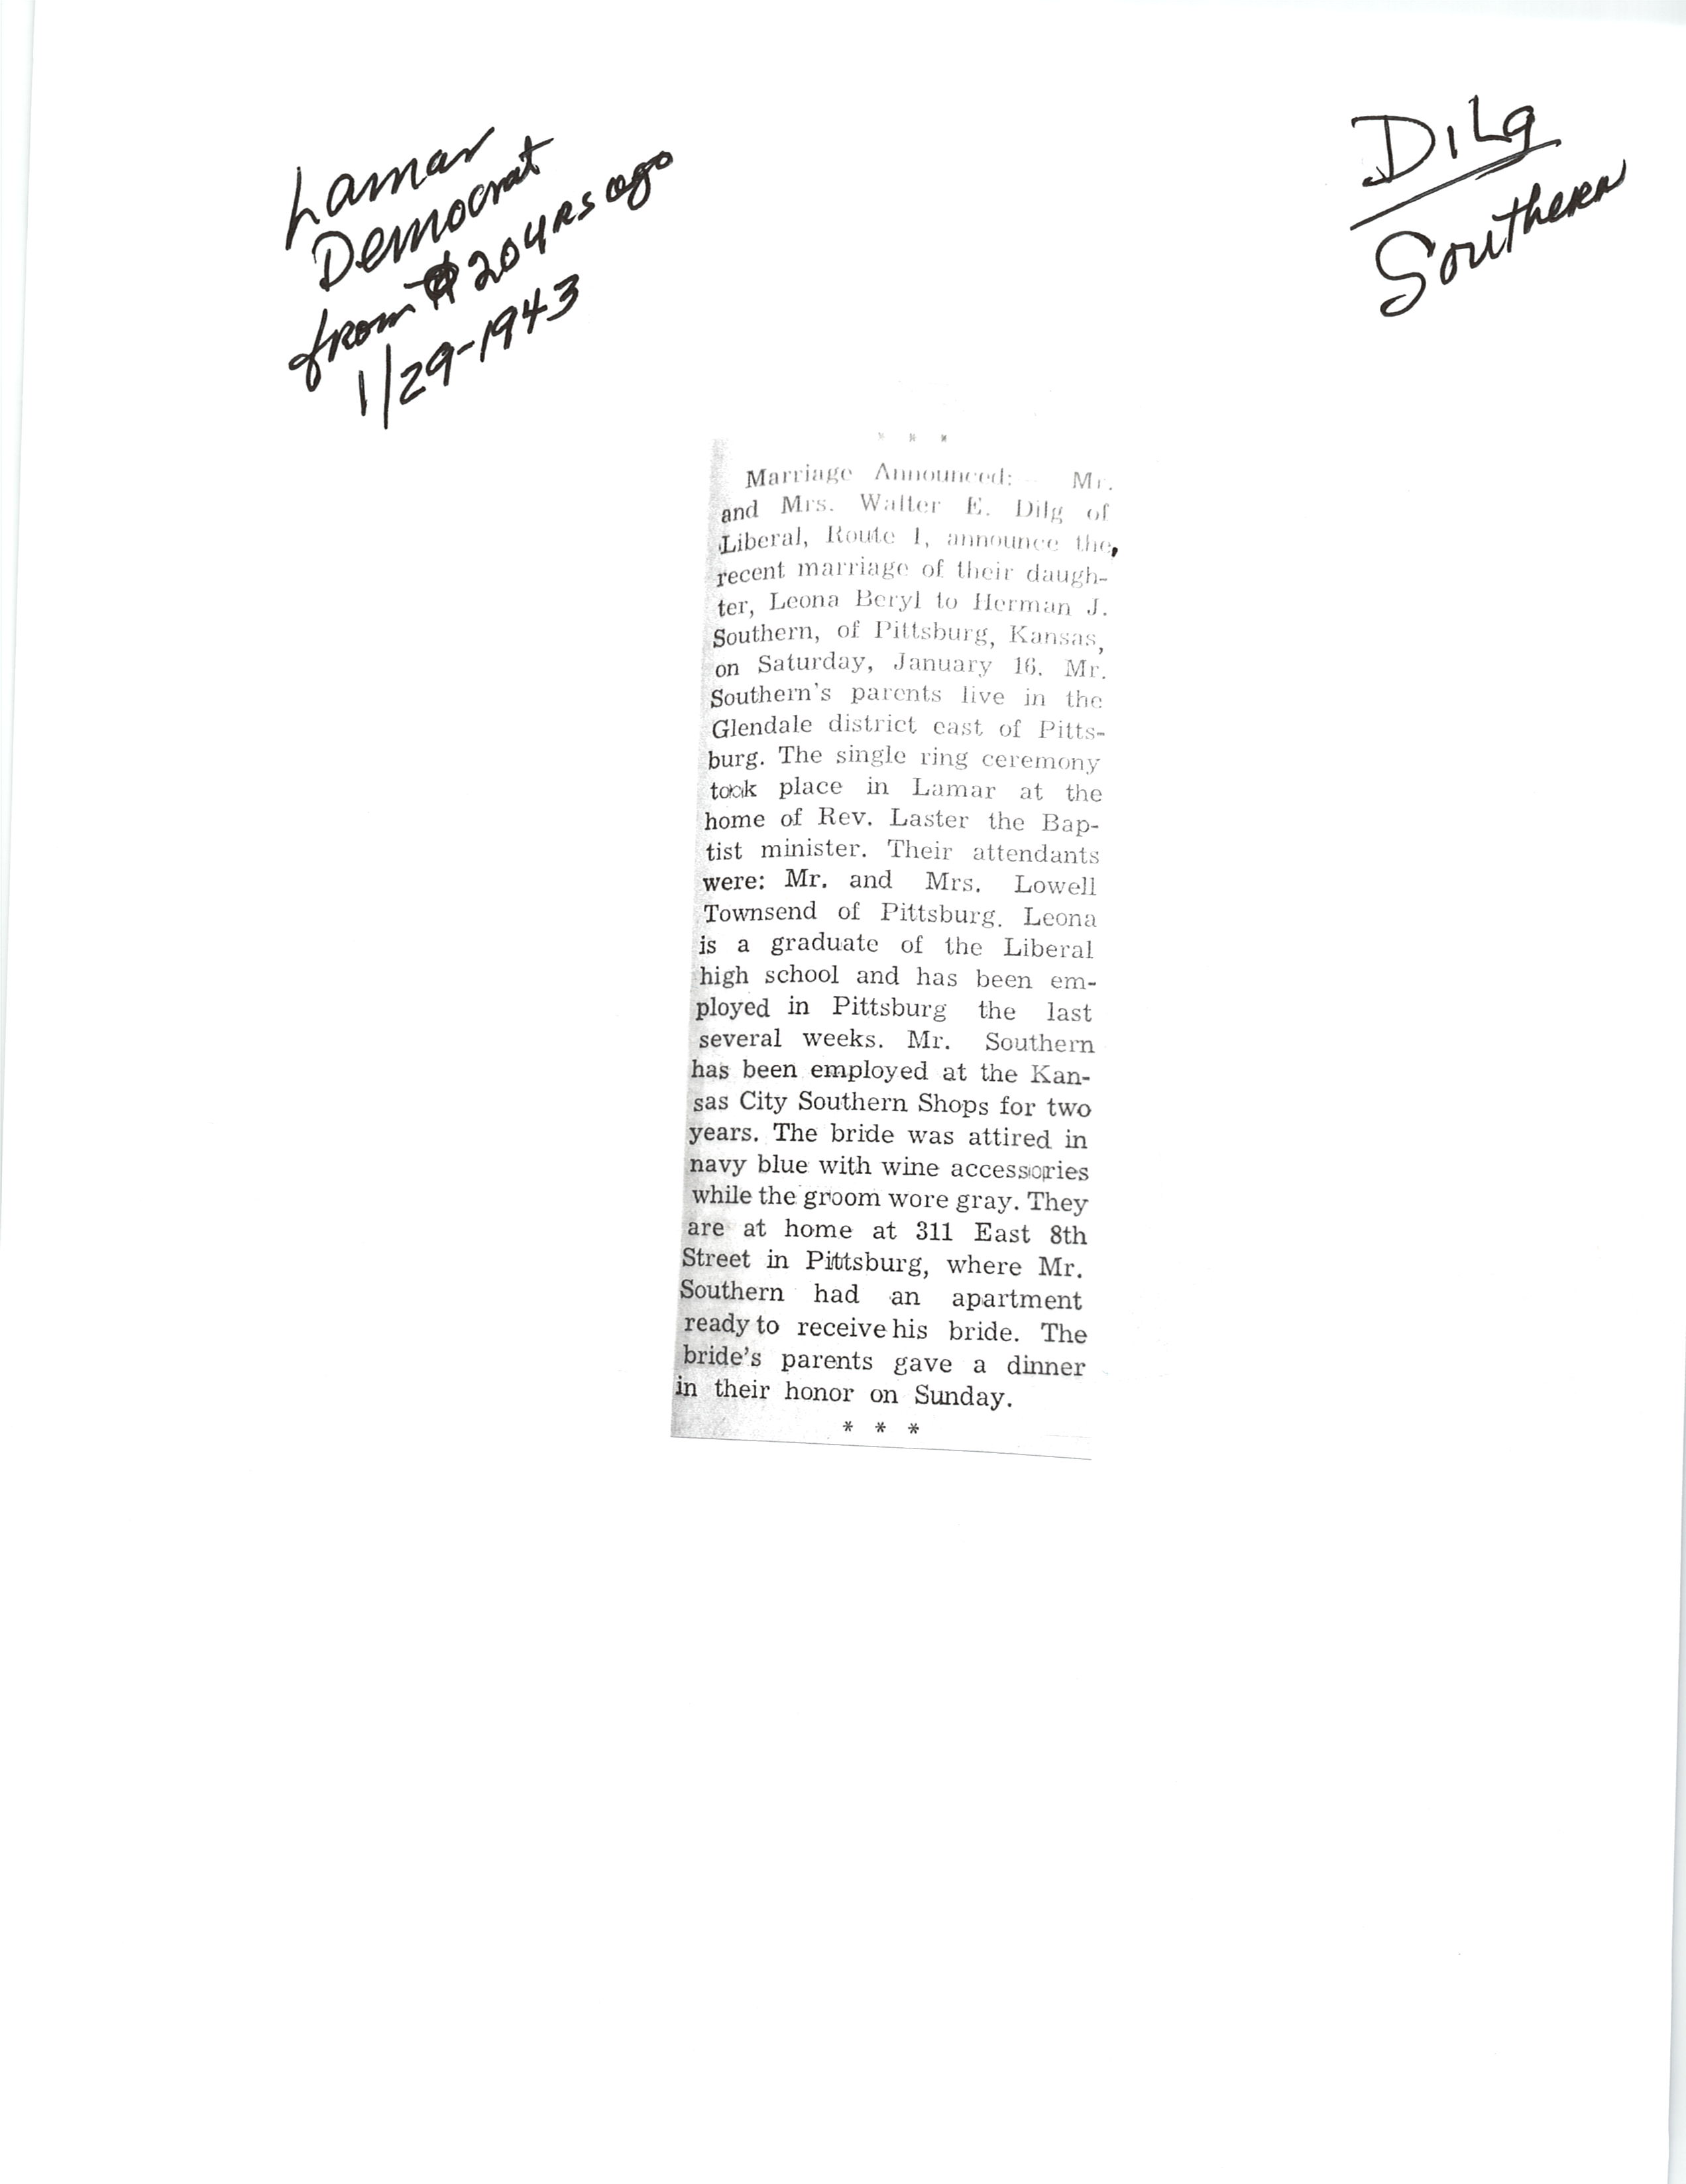 Lamar
Democrat
from 20 YRS ago
1/29-1943
DiLg
Southern
* * *
Marriage Announced: Mr.
and Mrs. Walter E. Dilg of
Liberal, Route 1, announce the
recent marriage of their daugh-
ter, Leona Beryl to Herman J.
Southern, of Pittsburg, Kansas,
on Saturday, January 16. Mr.
Southern's parents live in the
Glendale district east of Pitts-
burg. The single ring ceremony
took place in Lamar at the
home of Rev. Laster the Bap-
tist minister. Their attendants
were: Mr. and Mrs. Lowell
Townsend of Pittsburg. Leona
is a graduate of the Liberal
high school and has been em-
ployed in Pittsburg the last
several weeks. Mr. Southern
has been employed at the Kan-
sas City Southern Shops for two
years. The bride was attired in
navy blue with wine accessories
while the groom wore gray. They
are at home at 311 East 8th
Street in Pittsburg, where Mr.
Southern had an apartment
ready to receive his bride. The
bride's parents gave a dinner
in their honor on Sunday.
* * *